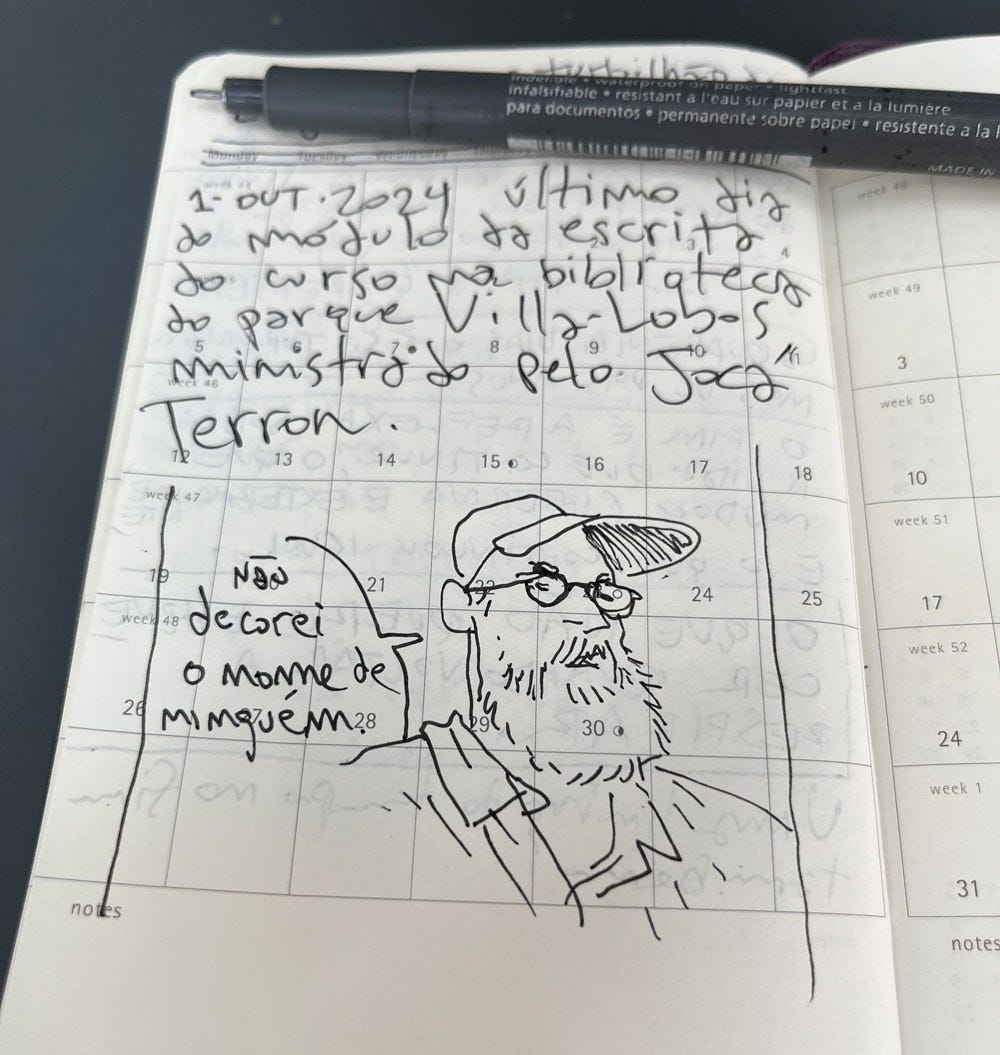 indelible • waterproof on paper • lightfast
infalsifiable • résistant à l'eau sur papier et a la lumière
para documentos • permanente sobre papel • resistente a la
MADE IN
Monday Tuesday Wednesday
1-OUT.2024 último dia
do módulo da escrita
do curso na biblioteca
do parque Villa-Lobos
ministrado pelo Joca
Terron.
3 4
5 6 7 8 9 10 11
week 46
12 13 14 15 16 17 18
week 47
19 21 22 24 25
week 48
26 27 28 29 30
não
decorei
o nome de
ninguém.
notes
week 48
week 49
3
week 50
10
week 51
17
week 52
24
week 1
31
notes